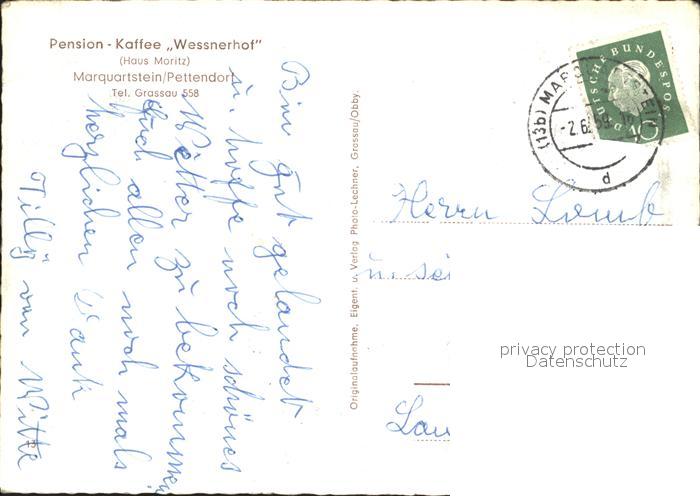 Pension - Kaffee „Wessnerhof"
(Haus Moritz)
Marquartstein/Pettendorf
Tel. Grassau 558
Bin gut gelandet
u. hoffe noch schönes
Wetter zu bekommen
Euch allen noch mals
herzlichen Dank
Tilly von Witte
Originalaufnahme, Eigent. u. Verlag Photo-Lechner, Grassau/Obby.
DEUTSCHE BUNDESPOST
10
(13b) MARQUARTSTEIN
-2.6.59
d
Herrn Lomb
u.
privacy protection
Datenschutz